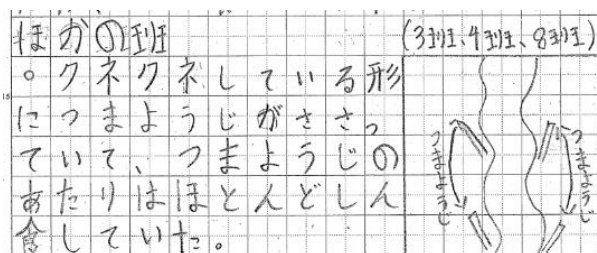 ほかの班
(3班、4班、8班)
。クネクネしている形
につまようじがささっ
ていて、つまようじの
あたりはほとんどしん
食していた。
つまようじ
つまようじ
15